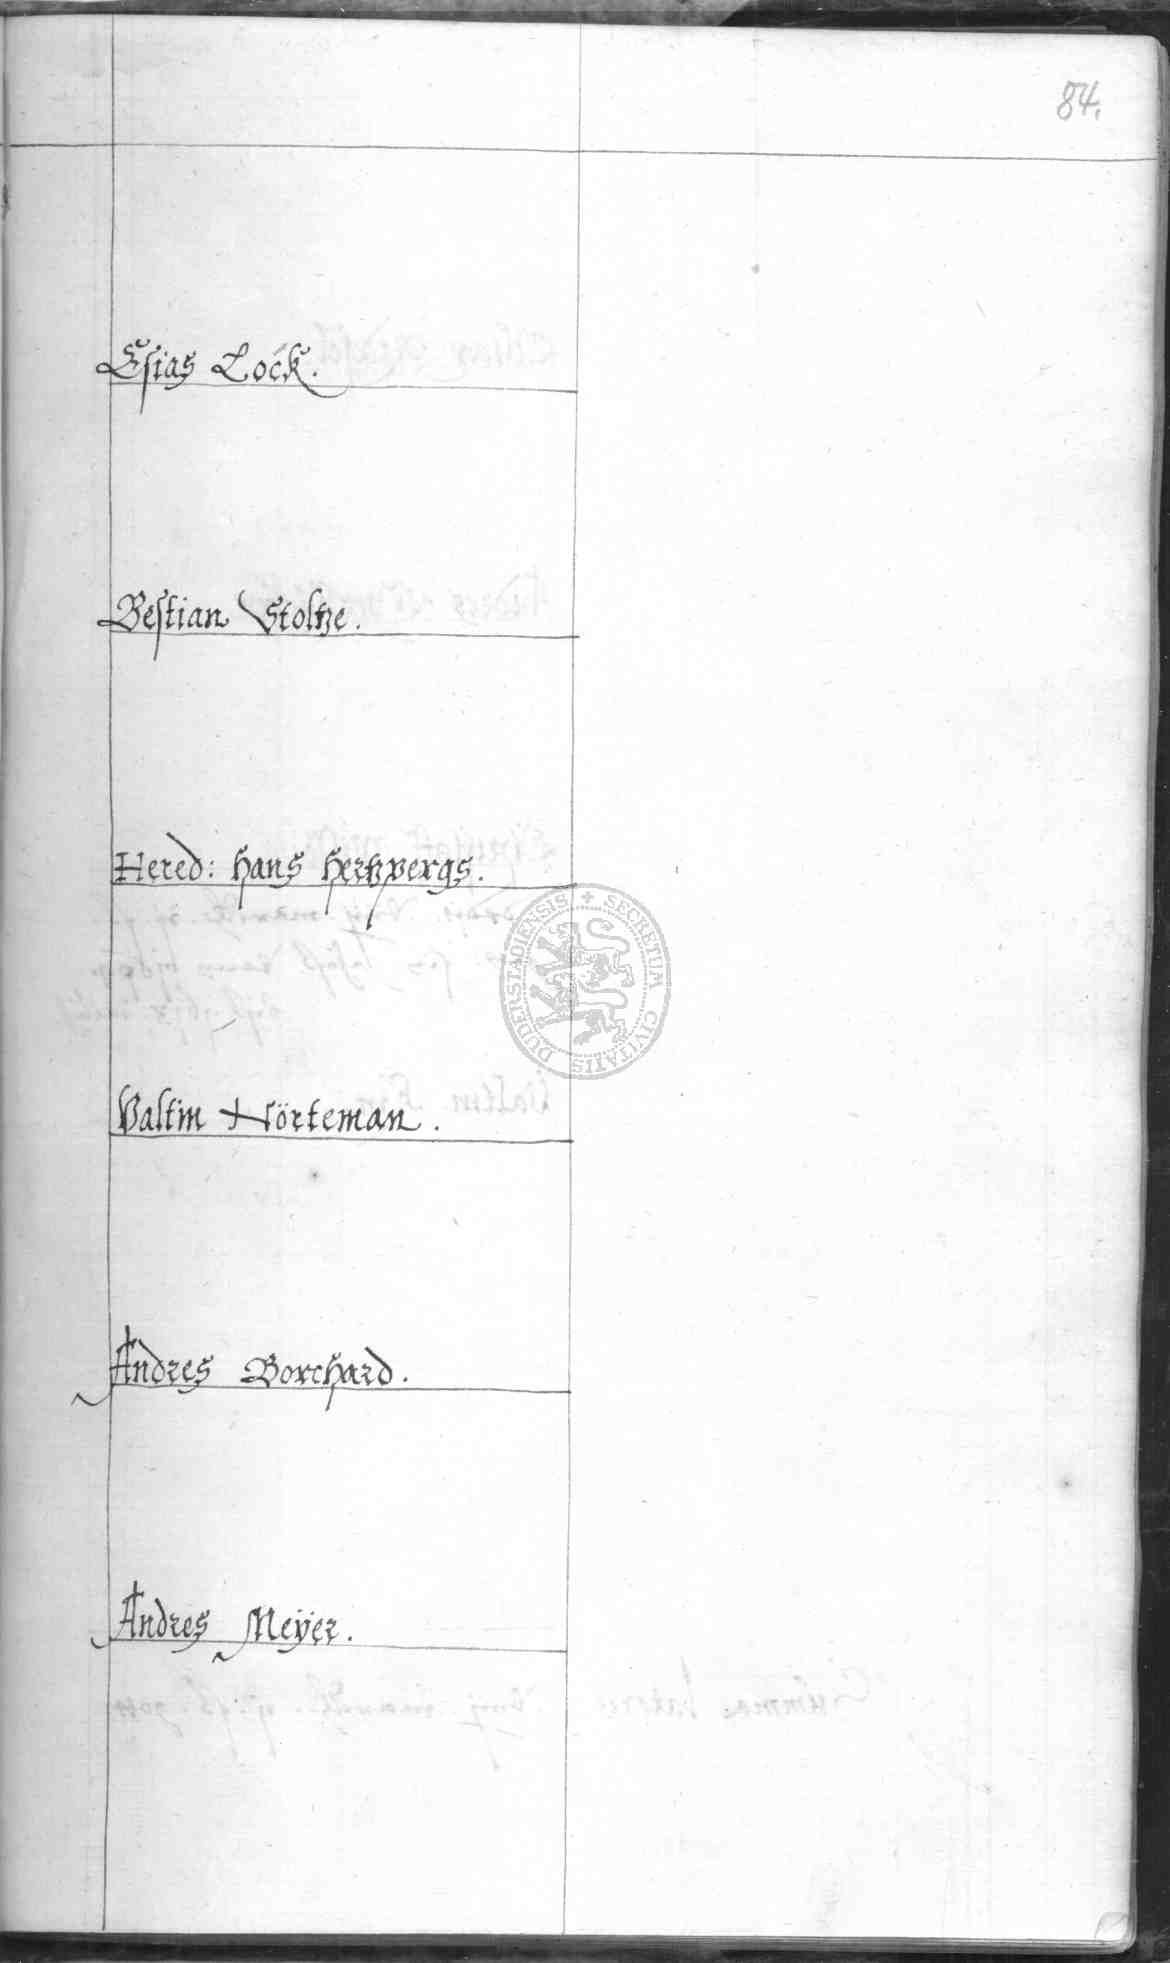 84.
Esias Lock.
Bestian Stoltze.
Hered: Hans Hertzbergs.
Valtin Nörteman.
Andres Borchard.
Andres Meÿer.
SECRETUM CIVITATIS DUDERSTADIENSIS